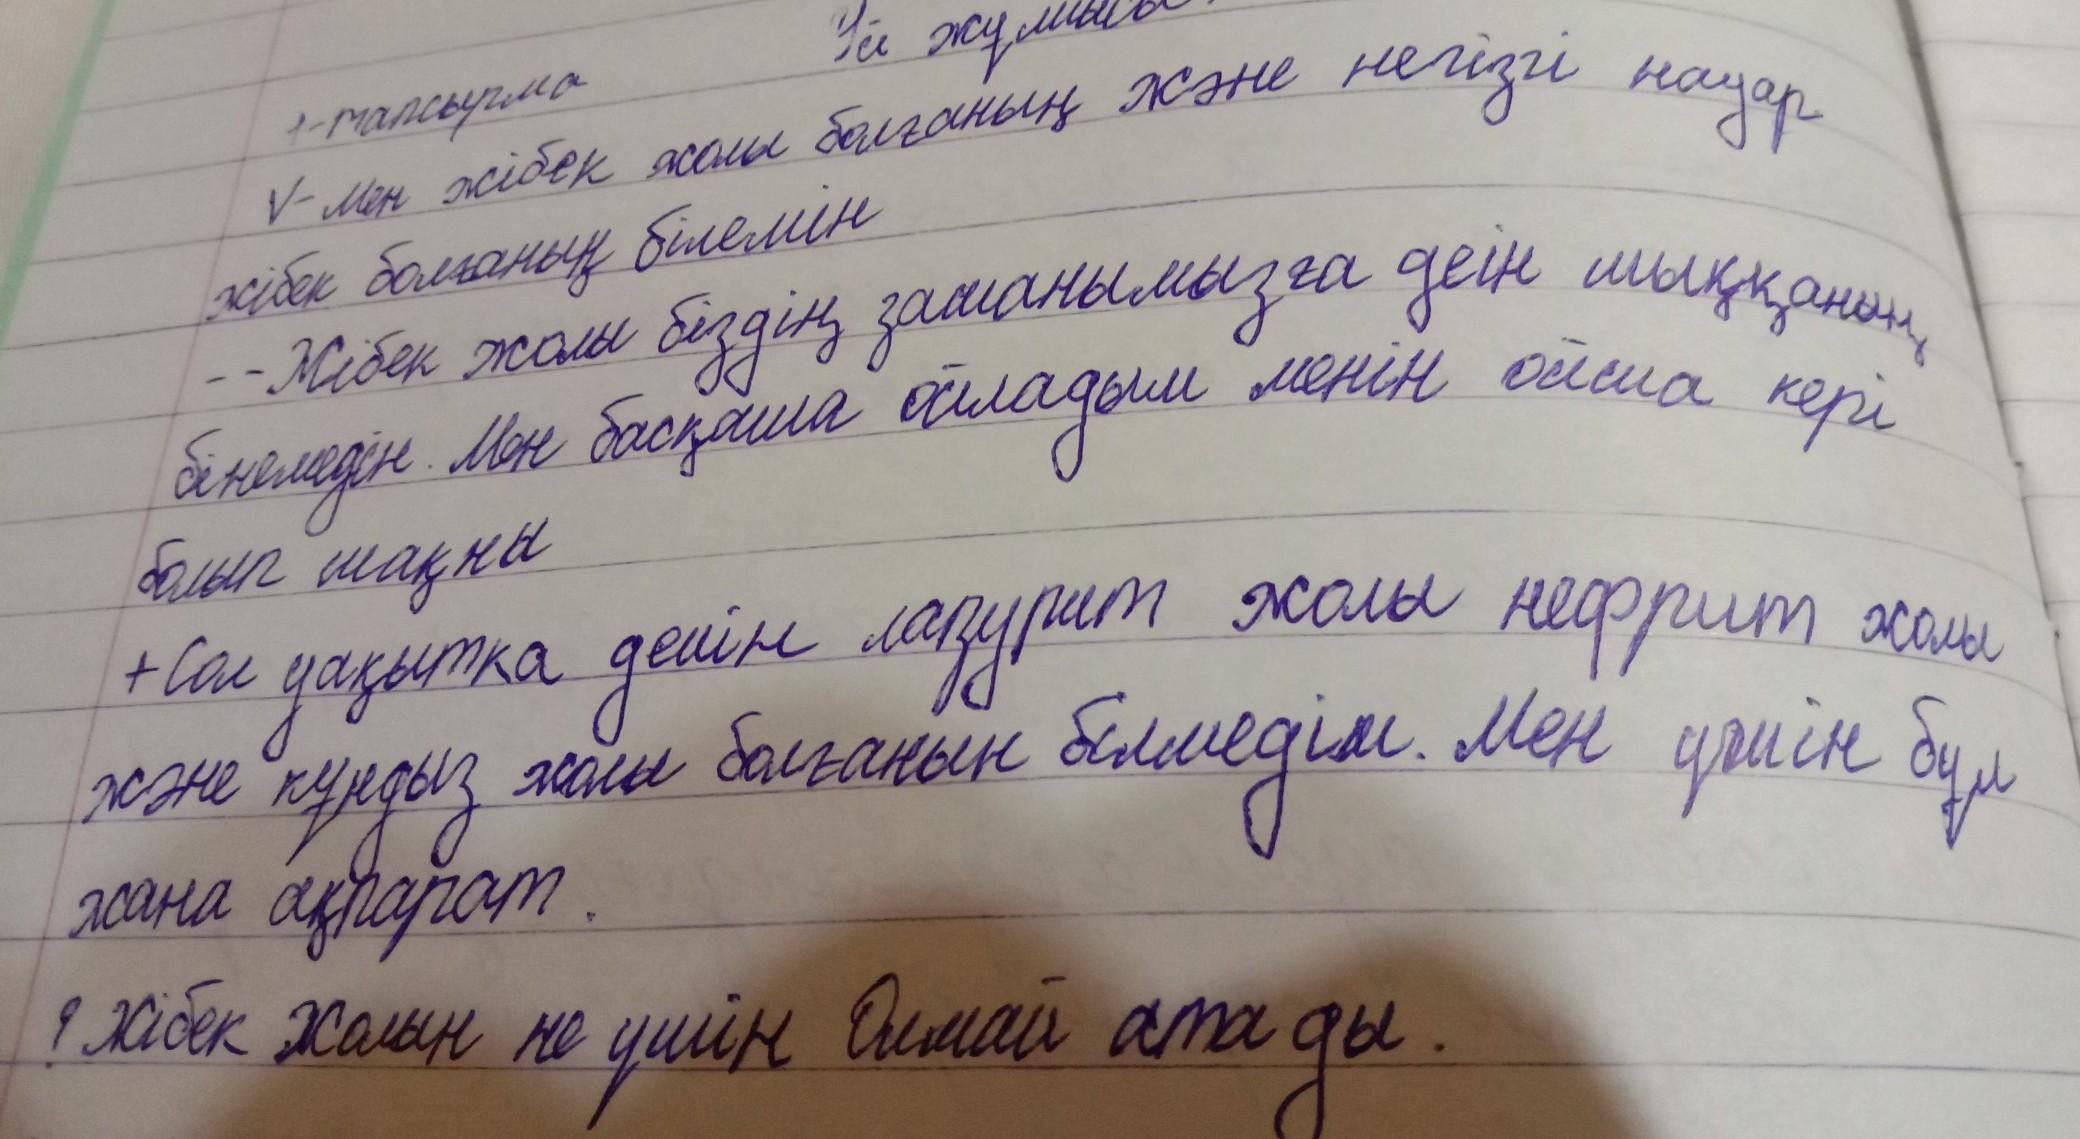 Үй жұмысы
1-тапсырма
V-Мен жібек жолы болғаның және негізгі науар
жібек болғаның білемін
--Жібек жолы біздің заманымызға деін шыққаның
білмедін. Мен басқаша ойладым менін ойша кері
болып шақны
+Сол уақытқа дейін лазурит жолы нефрит жолы
және құндыз жолы болғанын білмедім. Мен үшін бұл
жана ақпарат.
? Жібек жолын не үшін Олмай атады.